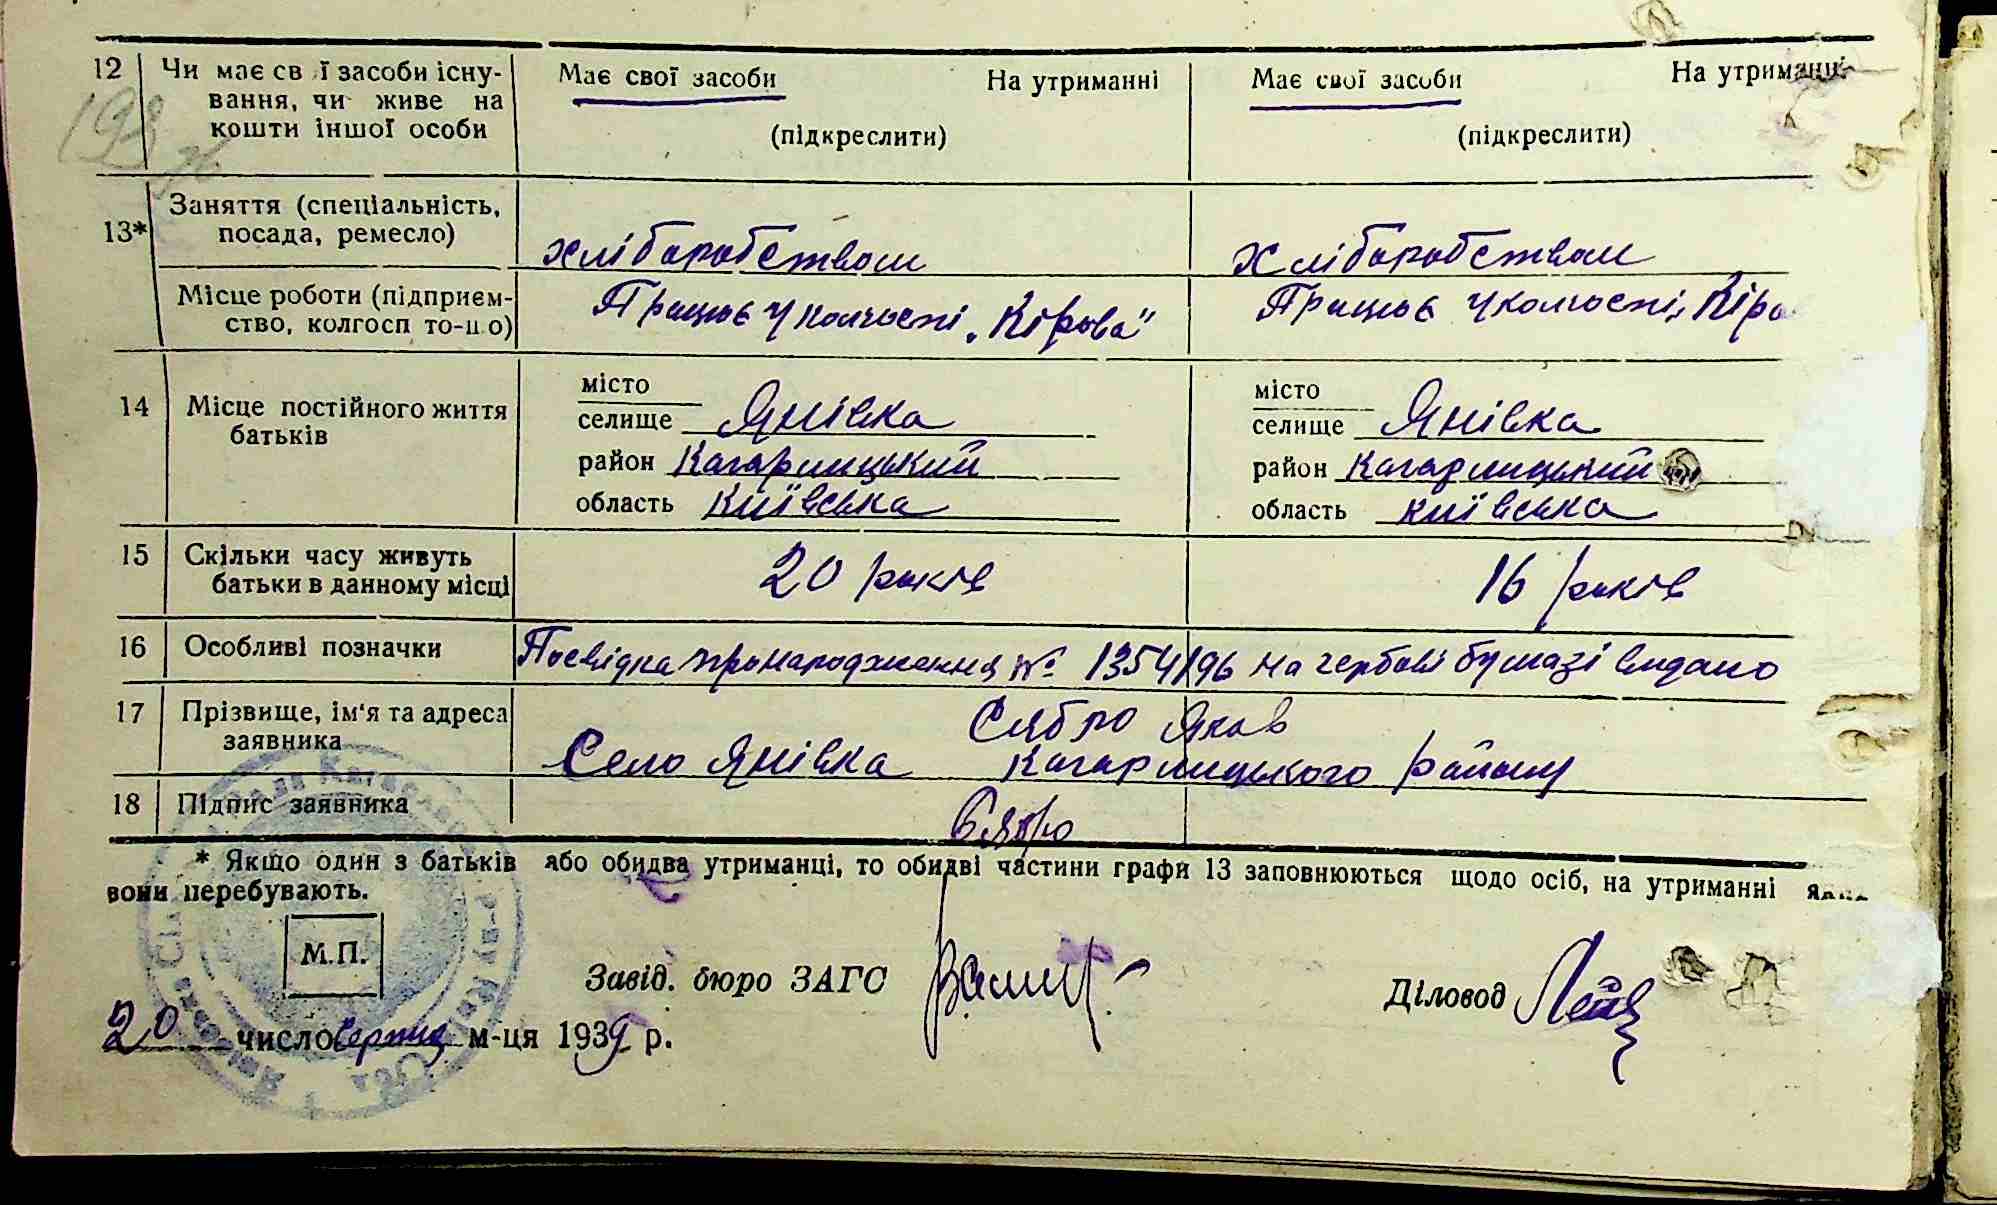 12 Чи має св ї засоби існу-
вання, чи живе на
кошти іншої особи
Має свої засоби На утриманні
(підкреслити)
Має свої засоби На утриманні
(підкреслити)
193
13* Заняття (спеціальність,
посада, ремесло)
хліборобством
хліборобством
Місце роботи (підприєм-
ство, колгосп то-що)
Працює у колгоспі „Кірова"
Працює у колгоспі „Кіро
14 Місце постійного життя
батьків
місто
селище Янівка
район Кагарлицький
область Київська
місто
селище Янівка
район Кагарлицький
область Київська
15 Скільки часу живуть
батьки в данному місці
20 років
16 років
16 Особливі позначки
Посвідка про народження № 1354196 на гербові бумазі видано
17 Прізвище, ім'я та адреса
заявника
Сябро Яков
Село Янівка Кагарлицького району
18 Підпис заявника
Сябро
* Якщо один з батьків або обидва утриманці, то обидві частини графи 13 заповнюються щодо осіб, на утриманні
вони перебувають.
М.П.
Завід. бюро ЗАГС
Діловод
20 число серпня м-ця 1939 р.